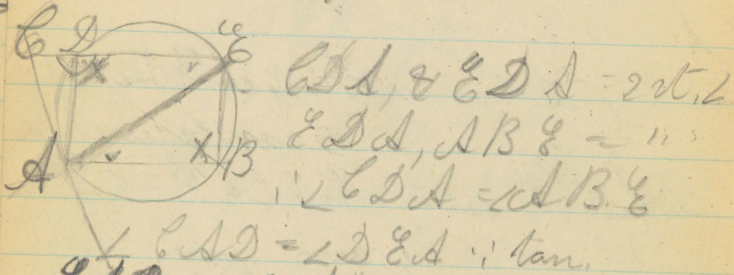 C D E
CDA, & EDA = 2 rt. <
EDA, ABE = "
A B
∴ < CDA = < ABE
< CAD = < DEA ∵ tan.